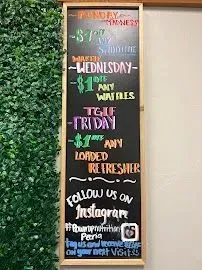 MONDAY
MADNESS
$1 OFF
ANY
SMOOTHIE
WAFFLE
~WEDNESDAY~
$1 OFF
ANY
WAFFLES
TGIF
~FRIDAY
$1 OFF ANY
LOADED
REFRESHER
FOLLOW US ON
Instagram
Peoria
Tag us and receive
on your next Visit